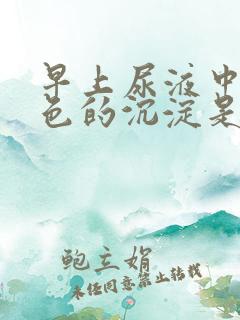 早上尿液中
色的沉淀是
鲍立娟
未经同意禁止转载